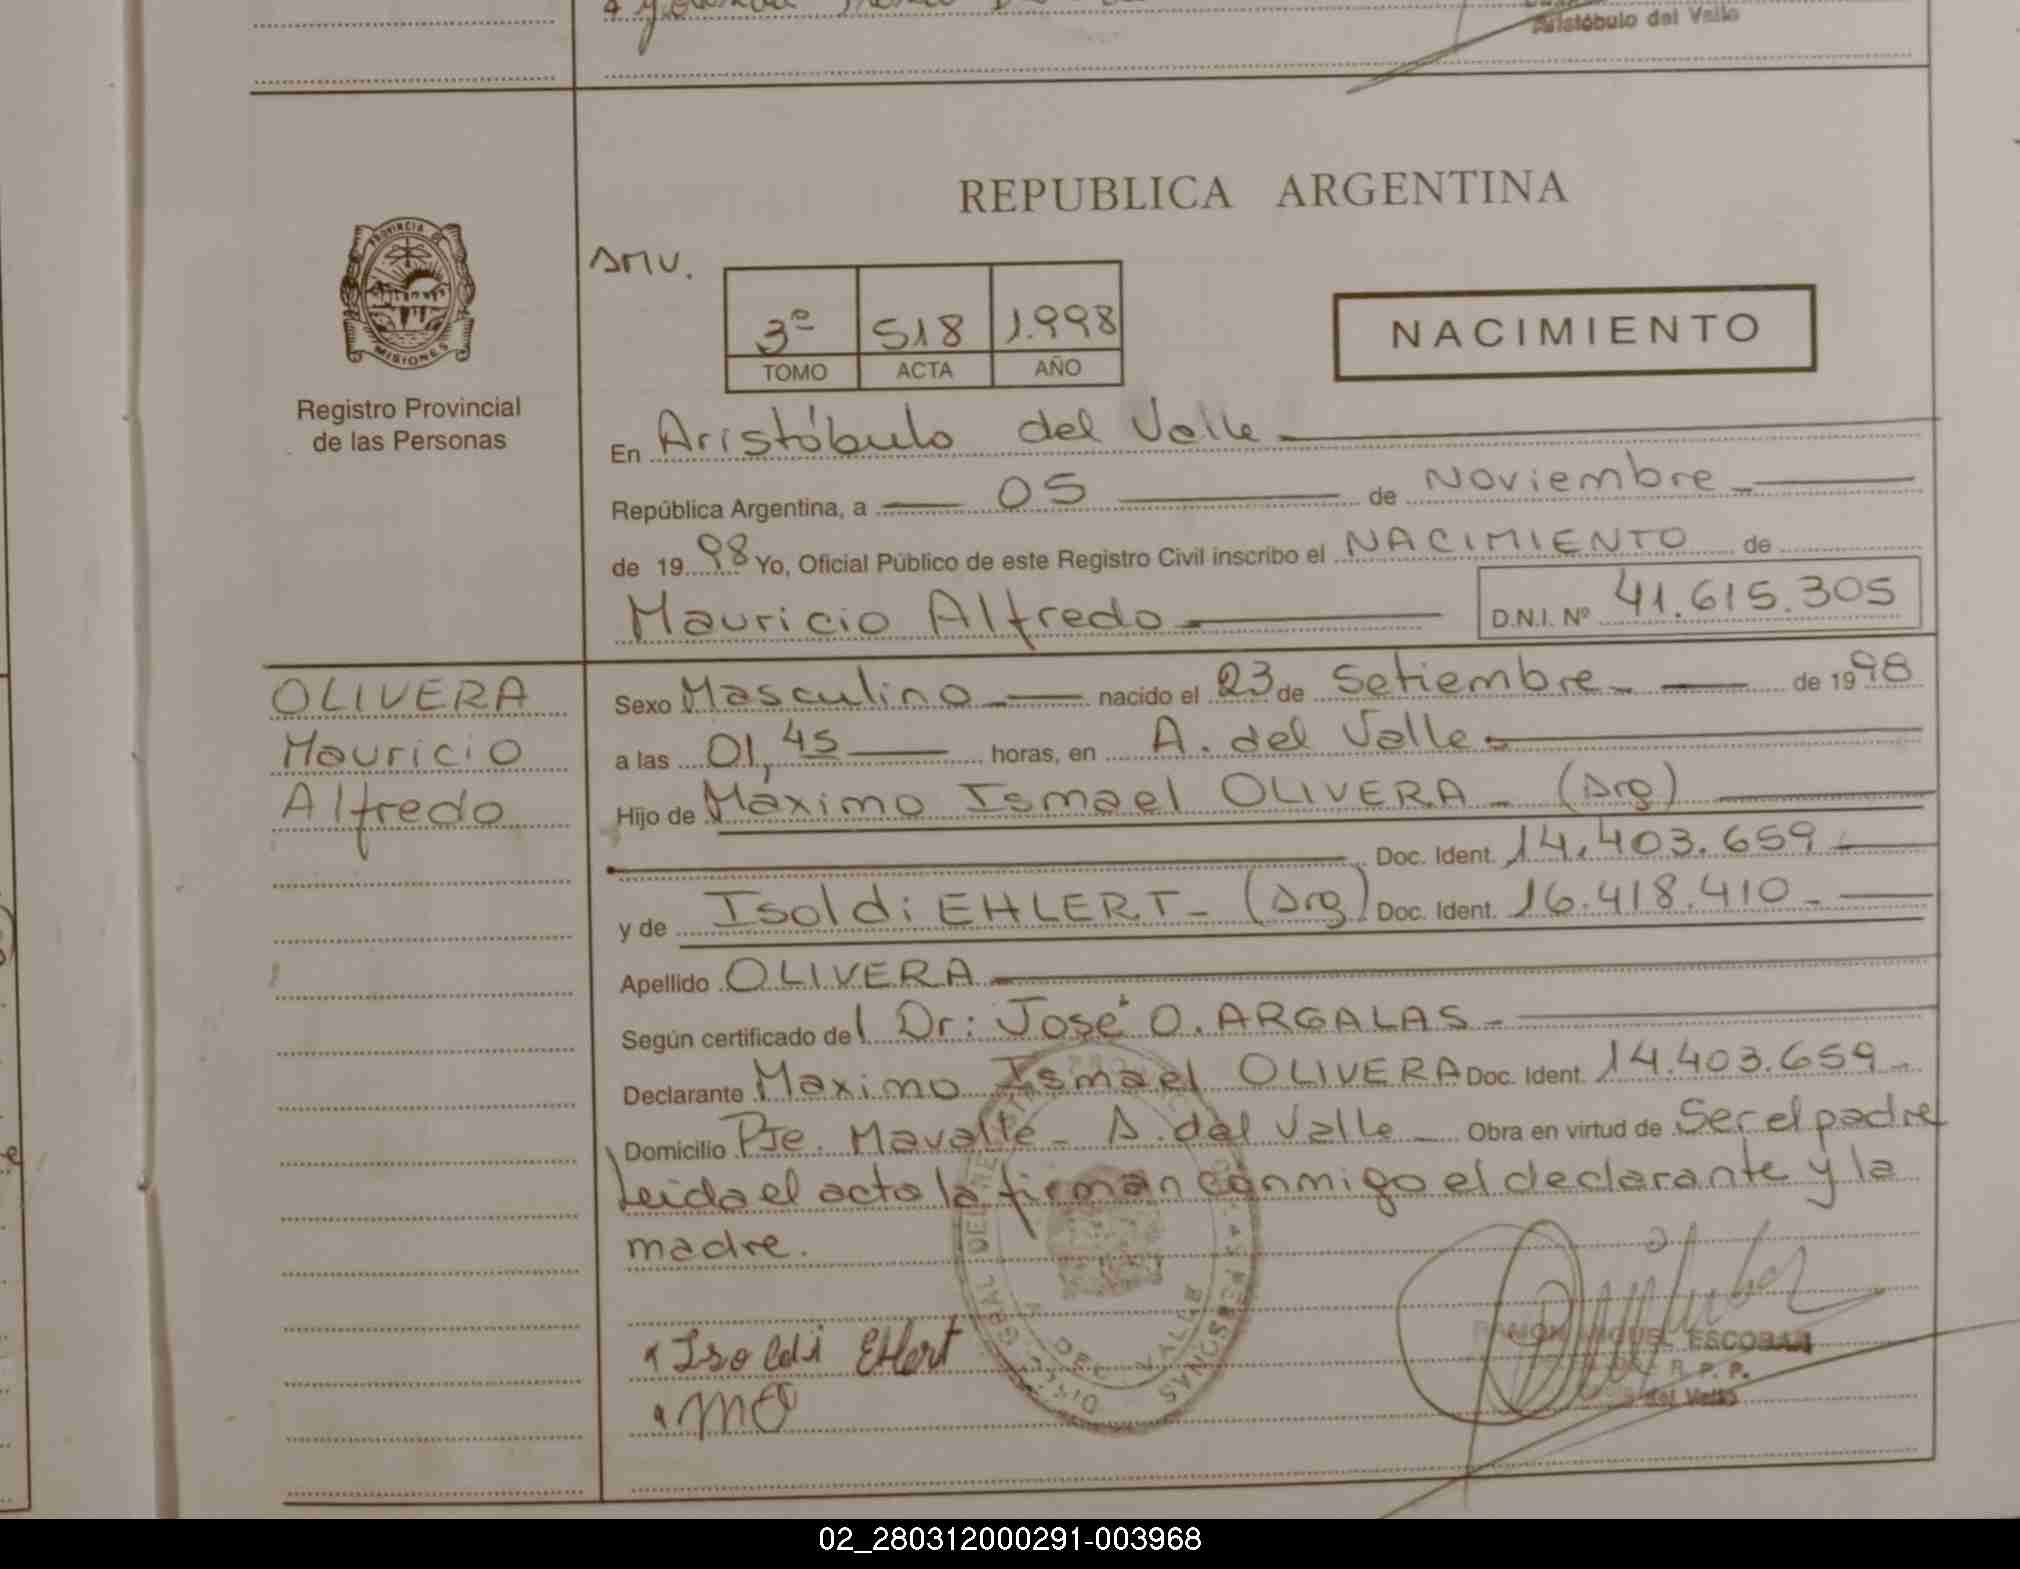 Aristóbulo del Valle
REPUBLICA ARGENTINA
PROVINCIA DE
MISIONES
Registro Provincial
de las Personas
SMV.
3º 518 1.998
TOMO ACTA AÑO
NACIMIENTO
En Aristóbulo del Valle
República Argentina, a 05 de Noviembre
de 1998 Yo, Oficial Público de este Registro Civil inscribo el NACIMIENTO de
Mauricio Alfredo D.N.I. Nº 41.615.305
OLIVERA
Mauricio
Alfredo
Sexo Masculino nacido el 23 de Setiembre de 1998
a las 01,45 horas, en A. del Valle
Hijo de Máximo Ismael OLIVERA (Arg)
Doc. Ident. 14.403.659
y de Isoldi EHLERT (Arg) Doc. Ident. 16.418.410
Apellido OLIVERA
Según certificado del Dr: José O. ARGALAS
Declarante Maximo Ismael OLIVERA Doc. Ident. 14.403.659
Domicilio Pje. Mavalle A. del Valle Obra en virtud de Ser el padre
Leida el acto la firman conmigo el declarante y la
madre.
Isoldi Ehlert
MO
A. DEL VALLE
RAMON MIGUEL ESCOBAR
R. P. P.
del Valle
02_280312000291-003968